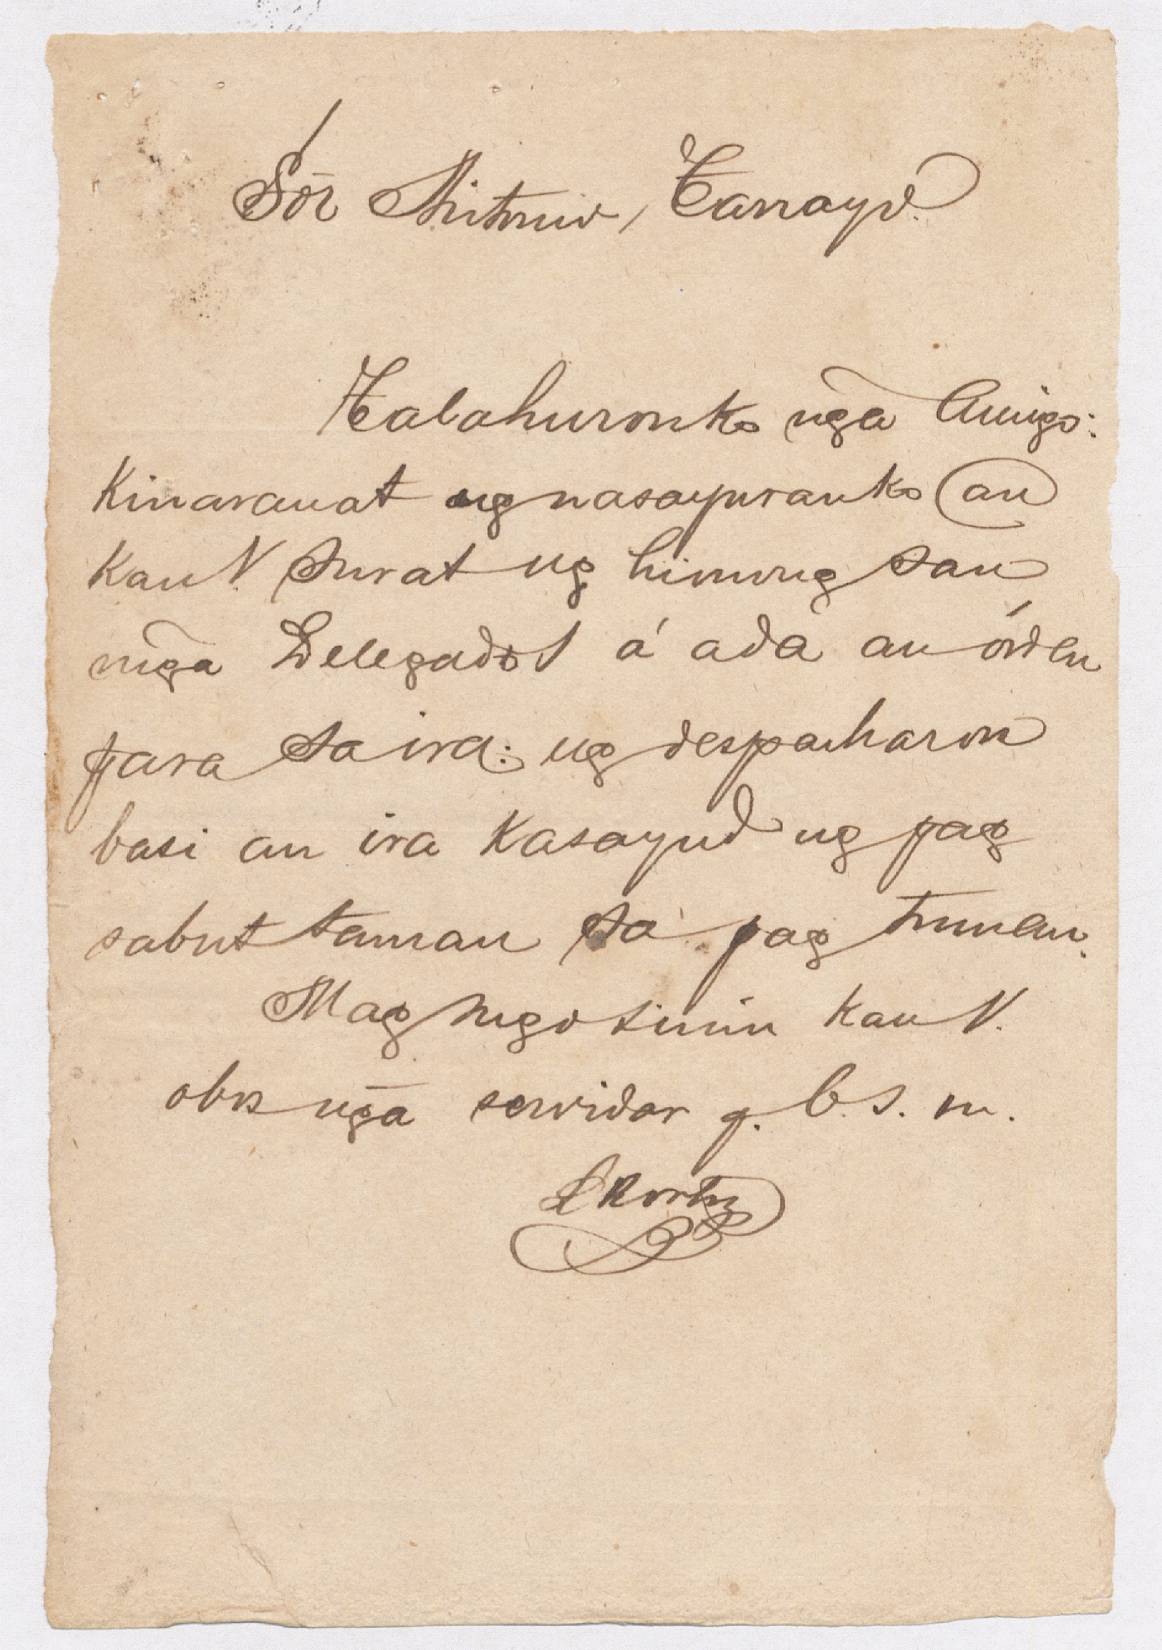 Sōr Antonio, Tarrayo.
Talahuronko nḡa Amigo:
Kinarauat ug nasayuranko an
Kan V. surat ug himung san
mḡa Delegados á adà an órden
para sa ira: ug despacharon
basi an ira Kasayud ug pag
sabut taman sa pag tuman.
Mag sugo sinin kan V.
obos nḡa servidor q. b. s. m.